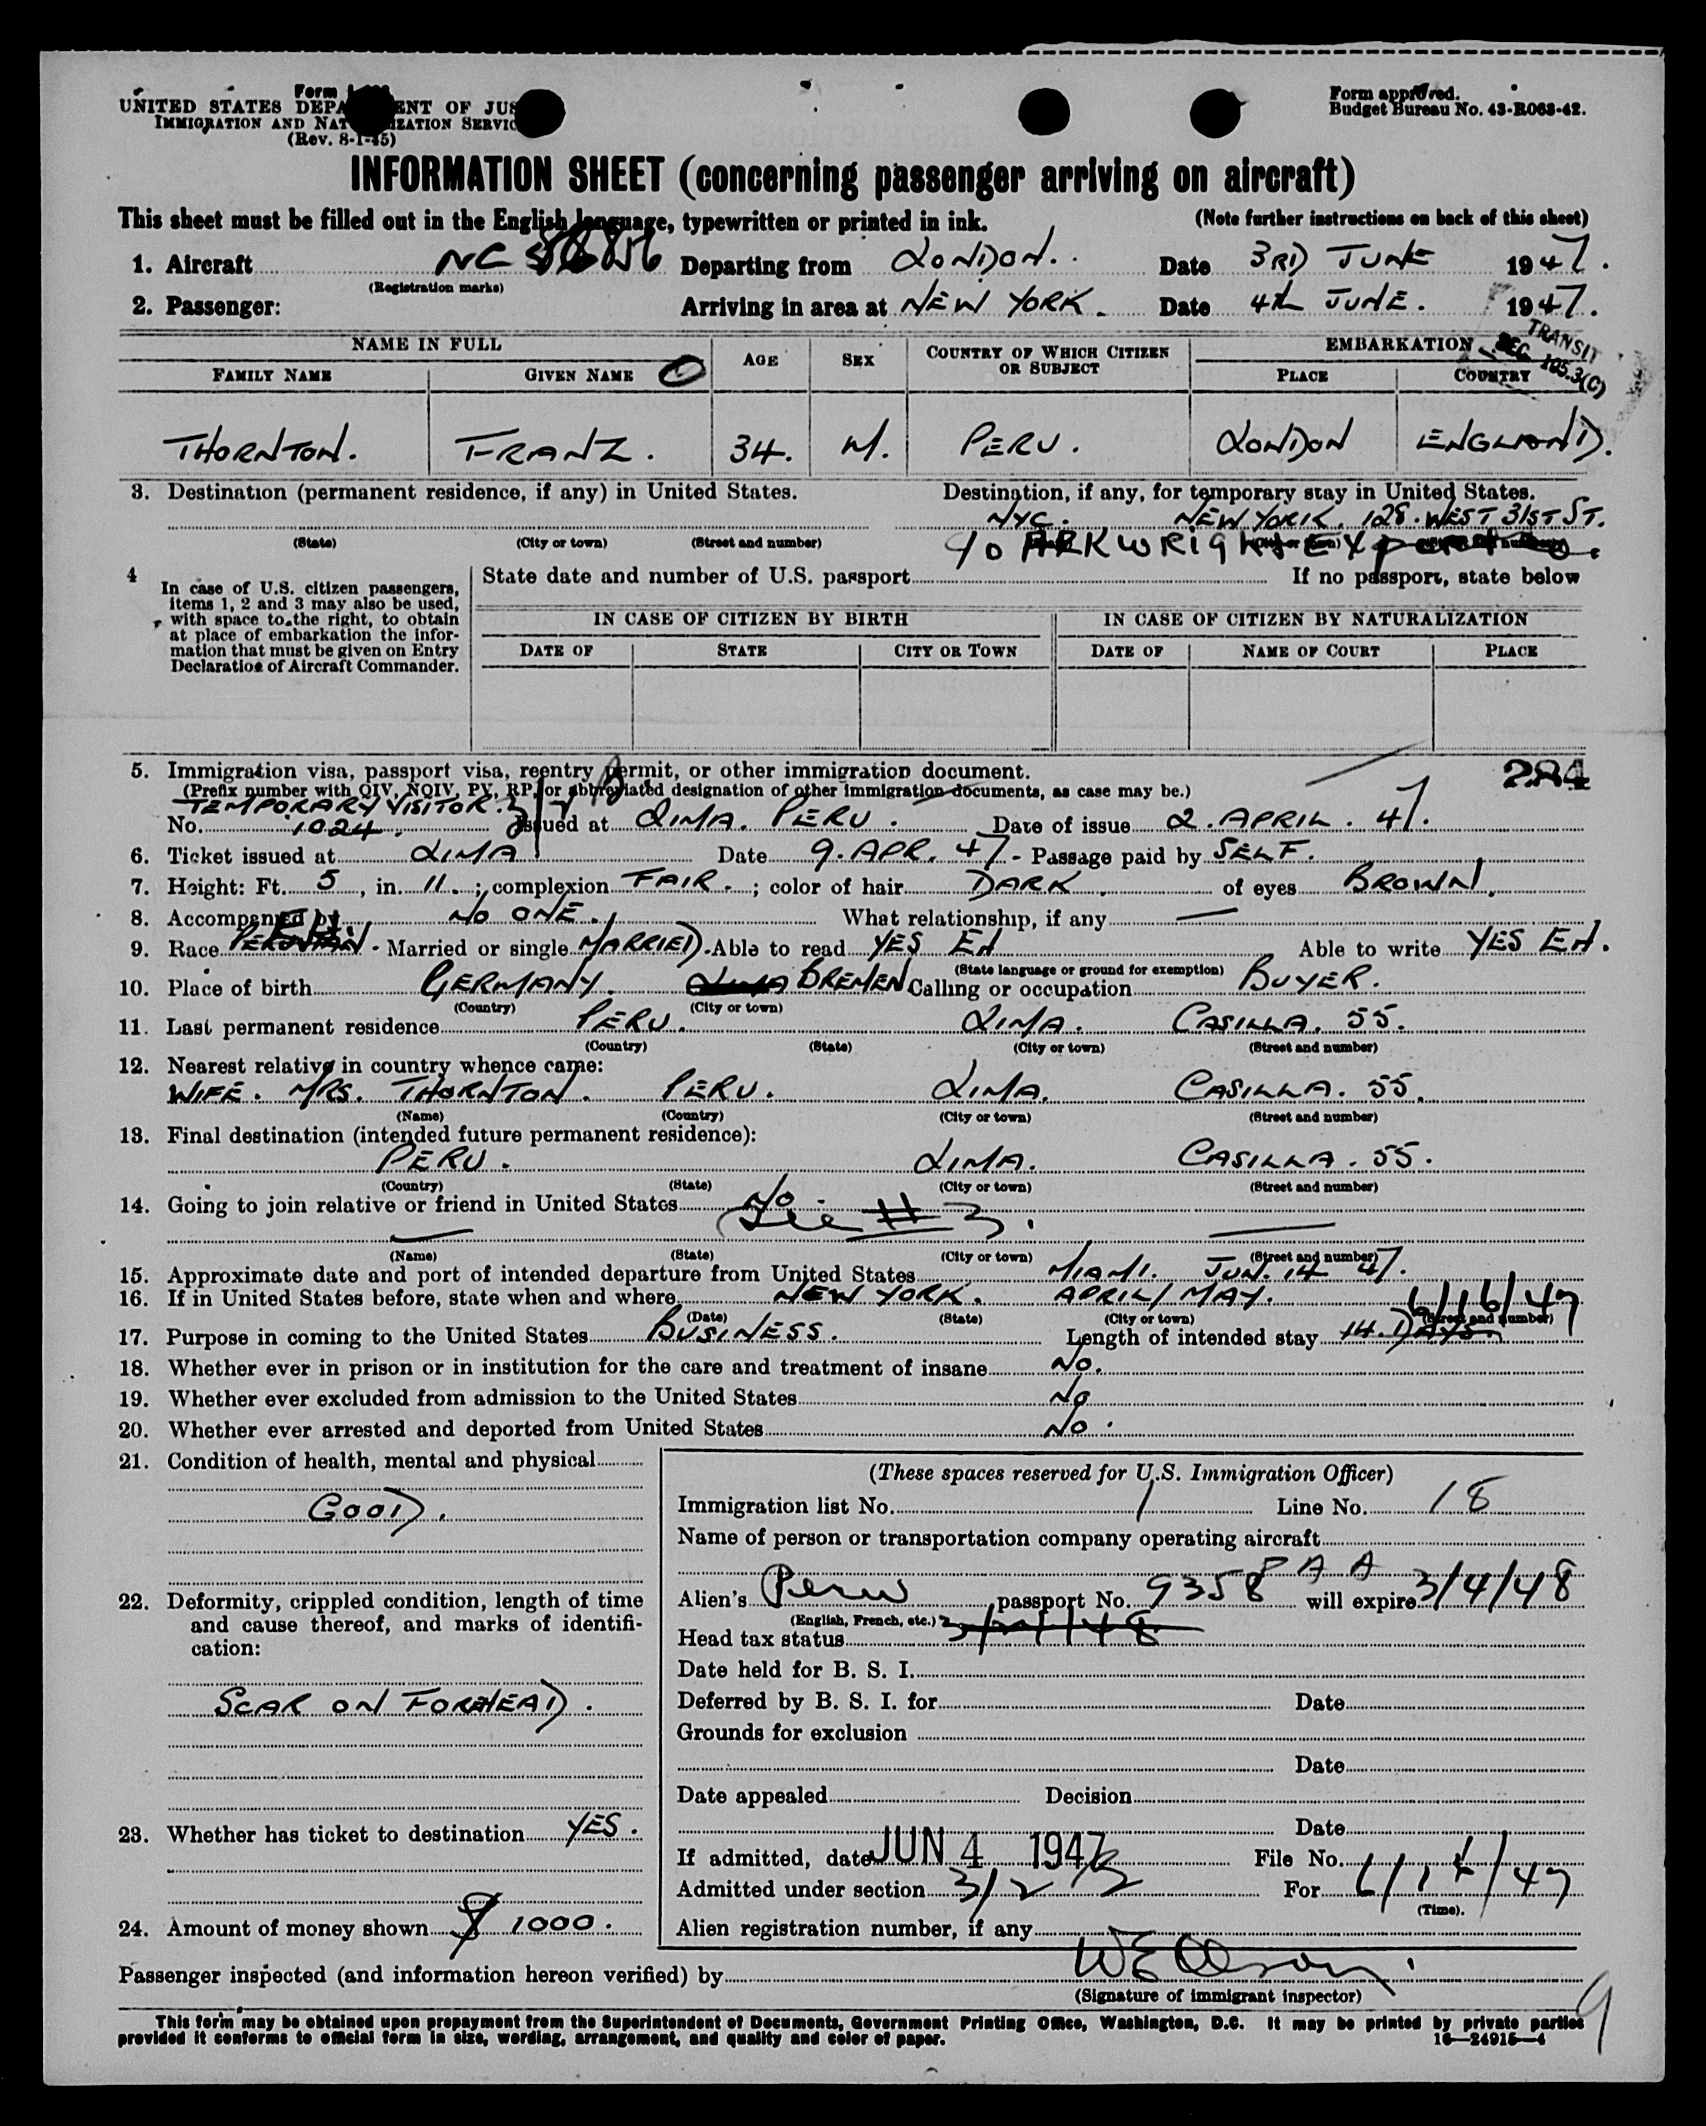 Form
UNITED STATES DEPARTMENT OF JUS
IMMIGRATION AND NATURALIZATION SERVIC
(Rev. 8-1-45)
Form approved.
Budget Bureau No. 43-R063-42.
INFORMATION SHEET (concerning passenger arriving on aircraft)
This sheet must be filled out in the English language, typewritten or printed in ink. (Note further instructions on back of this sheet)
1. Aircraft NC Departing from LONDON. Date 3RD JUNE 1947.
(Registration marks)
2. Passenger: Arriving in area at NEW YORK. Date 4th JUNE. 1947.
TRANSIT
SEC. 195.3(C)
NAME IN FULL AGE SEX COUNTRY OF WHICH CITIZEN OR SUBJECT EMBARKATION
FAMILY NAME GIVEN NAME PLACE COUNTRY
THORNTON. FRANZ. 34. M. PERU. LONDON ENGLAND.
3. Destination (permanent residence, if any) in United States. Destination, if any, for temporary stay in United States.
NYC. NEW YORK. 128. WEST 31ST ST.
(State) (City or town) (Street and number)
c/o ARKWRIGHT EXport Co.
4 In case of U.S. citizen passengers, items 1, 2 and 3 may also be used, with space to the right, to obtain at place of embarkation the information that must be given on Entry Declaration of Aircraft Commander.
State date and number of U.S. passport If no passport, state below
IN CASE OF CITIZEN BY BIRTH IN CASE OF CITIZEN BY NATURALIZATION
DATE OF STATE CITY OR TOWN DATE OF NAME OF COURT PLACE
5. Immigration visa, passport visa, reentry permit, or other immigration document. 284
(Prefix number with QIV, NQIV, PV, RP, or abbreviated designation of other immigration documents, as case may be.)
TEMPORARY VISITOR.
No. 1024. Issued at LIMA. PERU. Date of issue 2. APRIL. 47.
6. Ticket issued at LIMA Date 9. APR. 47 - Passage paid by SELF.
7. Height: Ft. 5, in. 11.; complexion FAIR.; color of hair DARK. of eyes BROWN.
8. Accompanied by NO ONE. What relationship, if any —
9. Race PERUVIAN - Married or single MARRIED. Able to read YES EH Able to write YES EH.
(State language or ground for exemption)
10. Place of birth GERMANY. LIMA BREMEN Calling or occupation BUYER.
(Country) (City or town)
11. Last permanent residence PERU. LIMA. CASILLA. 55.
(Country) (State) (City or town) (Street and number)
12. Nearest relative in country whence came:
WIFE. MRS. THORNTON. PERU. LIMA. CASILLA. 55.
(Name) (Country) (City or town) (Street and number)
13. Final destination (intended future permanent residence):
PERU. LIMA. CASILLA. 55.
(Country) (State) (City or town) (Street and number)
14. Going to join relative or friend in United States No
See # 3.
(Name) (State) (City or town) (Street and number)
15. Approximate date and port of intended departure from United States MIAMI. JUN. 14 47.
16. If in United States before, state when and where NEW YORK. APRIL/MAY.
(Date) (State) (City or town) (Street and number)
6/16/47
17. Purpose in coming to the United States BUSINESS. Length of intended stay 14. DAYS
18. Whether ever in prison or in institution for the care and treatment of insane No.
19. Whether ever excluded from admission to the United States No
20. Whether ever arrested and deported from United States No.
21. Condition of health, mental and physical
GOOD.
22. Deformity, crippled condition, length of time and cause thereof, and marks of identification:
SCAR ON FOREHEAD.
23. Whether has ticket to destination YES.
24. Amount of money shown $ 1000.
(These spaces reserved for U.S. Immigration Officer)
Immigration list No. 1 Line No. 18
Name of person or transportation company operating aircraft
P A A
Alien's Peru passport No. 9358 will expire 3/4/48
(English, French, etc.)
Head tax status
Date held for B. S. I.
Deferred by B. S. I. for Date
Grounds for exclusion
Date
Date appealed Decision
Date
If admitted, date JUN 4 1947 File No.
Admitted under section 3/2 For
(Time).
Alien registration number, if any
Passenger inspected (and information hereon verified) by
(Signature of immigrant inspector)
9
This form may be obtained upon prepayment from the Superintendent of Documents, Government Printing Office, Washington, D.C. It may be printed by private parties
provided it conforms to official form in size, wording, arrangement, and quality and color of paper. 16—24915—4